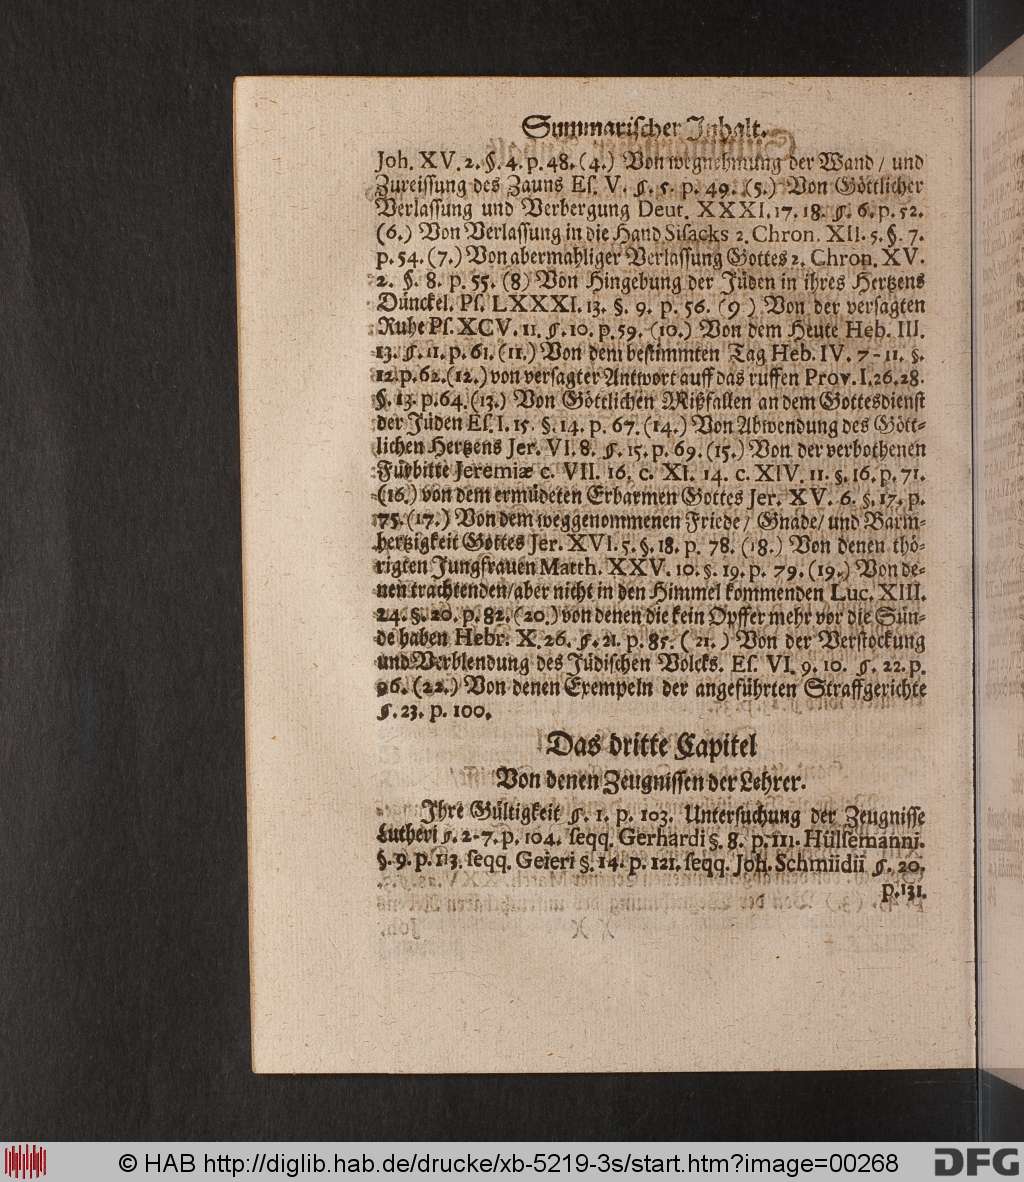 Summarischer Inhalt.
Joh. XV. 2. §. 4. p. 48. (4.) Von wegnehmung der Wand / und
Zureissung des Zauns Eſ. V. §. 5. p. 49. (5.) Von Göttlicher
Verlassung und Verbergung Deut. XXXI. 17. 18. §. 6. p. 52.
(6.) Von Verlassung in die Hand Siſacks 2. Chron. XII. 5. §. 7.
p. 54. (7.) Von abermahliger Verlassung Gottes 2. Chron. XV.
2. §. 8. p. 55. (8) Von Hingebung der Jüden in ihres Hertzens
Dünckel. Pſ. LXXXI. 13. §. 9. p. 56. (9) Von der versagten
Ruhe Pſ. XCV. 11. §. 10. p. 59. (10.) Von dem Heute Heb. III.
13. §. 11. p. 61. (11.) Von dem bestimmten Tag Heb. IV. 7-11. §.
12. p. 62. (12.) von versagter Antwort auff das ruffen Prov. I. 26. 28.
§. 13. p. 64. (13.) Von Göttlichen Mißfallen an dem Gottesdienst
der Jüden Eſ. I. 15. §. 14. p. 67. (14.) Von Abwendung des Gött-
lichen Hertzens Jer. VI. 8. §. 15. p. 69. (15.) Von der verbothenen
Fürbitte Jeremiæ c. VII. 16. c. XI. 14. c. XIV. 11. §. 16. p. 71.
(16.) von dem ermüdeten Erbarmen Gottes Jer. XV. 6. §. 17. p.
75. (17.) Von dem weggenommenen Friede / Gnade / und Barm-
hertzigkeit Gottes Jer. XVI. 5. §. 18. p. 78. (18.) Von denen thö-
rigten Jungfrauen Matth. XXV. 10. §. 19. p. 79. (19.) Von de-
nen trachtenden / aber nicht in den Himmel kommenden Luc. XIII.
24. §. 20. p. 82. (20.) von denen die kein Opffer mehr vor die Sün-
de haben Hebr. X. 26. §. 21. p. 85. (21.) Von der Verstockung
und Verblendung des Jüdischen Volcks. Eſ. VI. 9. 10. §. 22. p.
96. (22.) Von denen Exempeln der angeführten Straffgerichte
§. 23. p. 100.
Das dritte Capitel
Von denen Zeugnissen der Lehrer.
Ihre Gültigkeit §. 1. p. 103. Untersuchung der Zeugnisse
Lutheri §. 2-7. p. 104. ſeqq. Gerhardi §. 8. p. 111. Hülſemanni.
§. 9. p. 113. ſeqq. Geieri §. 14. p. 121. ſeqq. Joh. Schmiidii §. 20.
p. 131.
© HAB http://diglib.hab.de/drucke/xb-5219-3s/start.htm?image=00268
DFG